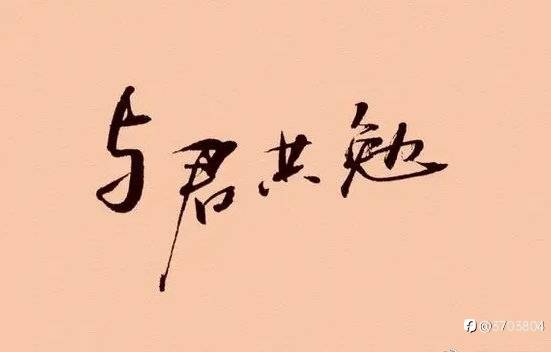 与君共勉
@3703804